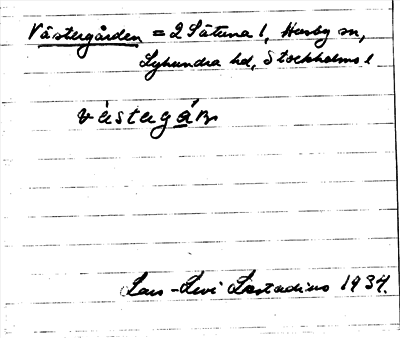 Västergården = 2 Såtuna 1, Husby sn,
Lyhundra hd, Stockholms l
västagán
Lars-Levi Læstadius 1934.